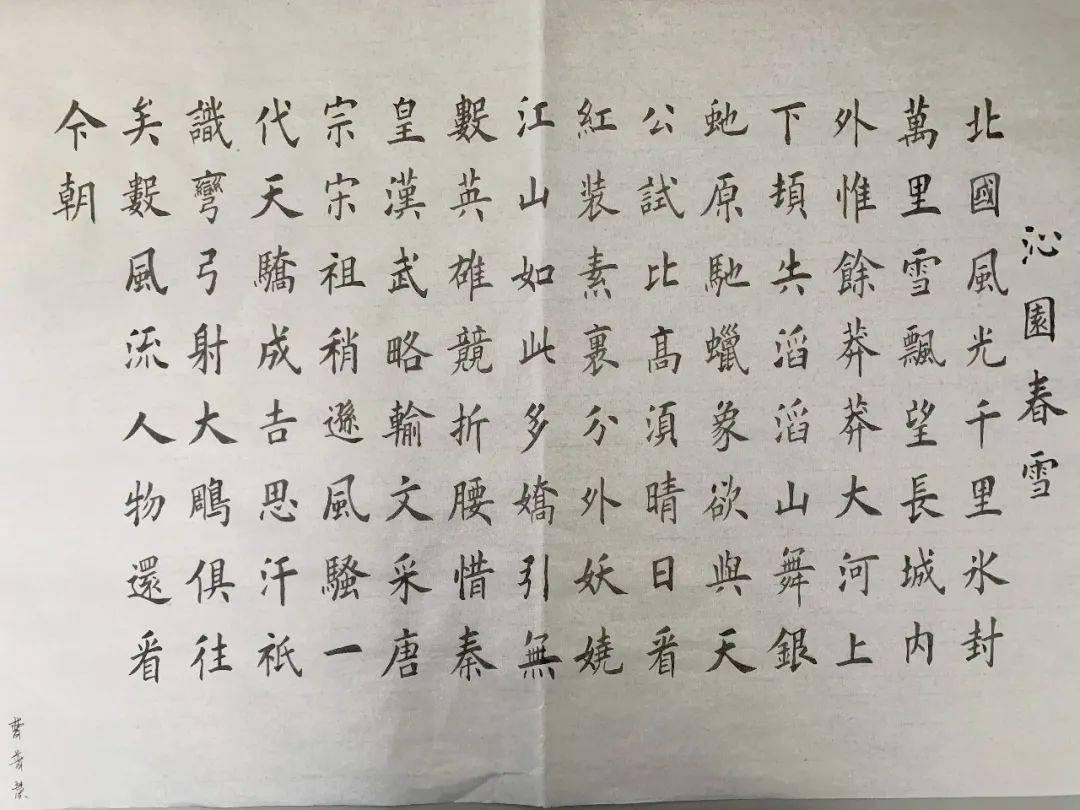 沁園春雪
北國風光千里氷封
萬里雪飄望長城内
外惟餘莽莽大河上
下頓失滔滔山舞銀
虵原馳蠟象欲與天
公試比高須晴日看
紅裝素裹分外妖嬈
江山如此多嬌引無
數英雄競折腰惜秦
皇漢武略輸文采唐
宗宋祖稍遜風騷一
代天驕成吉思汗衹
識彎弓射大鵰俱往
矣數風流人物還看
今朝